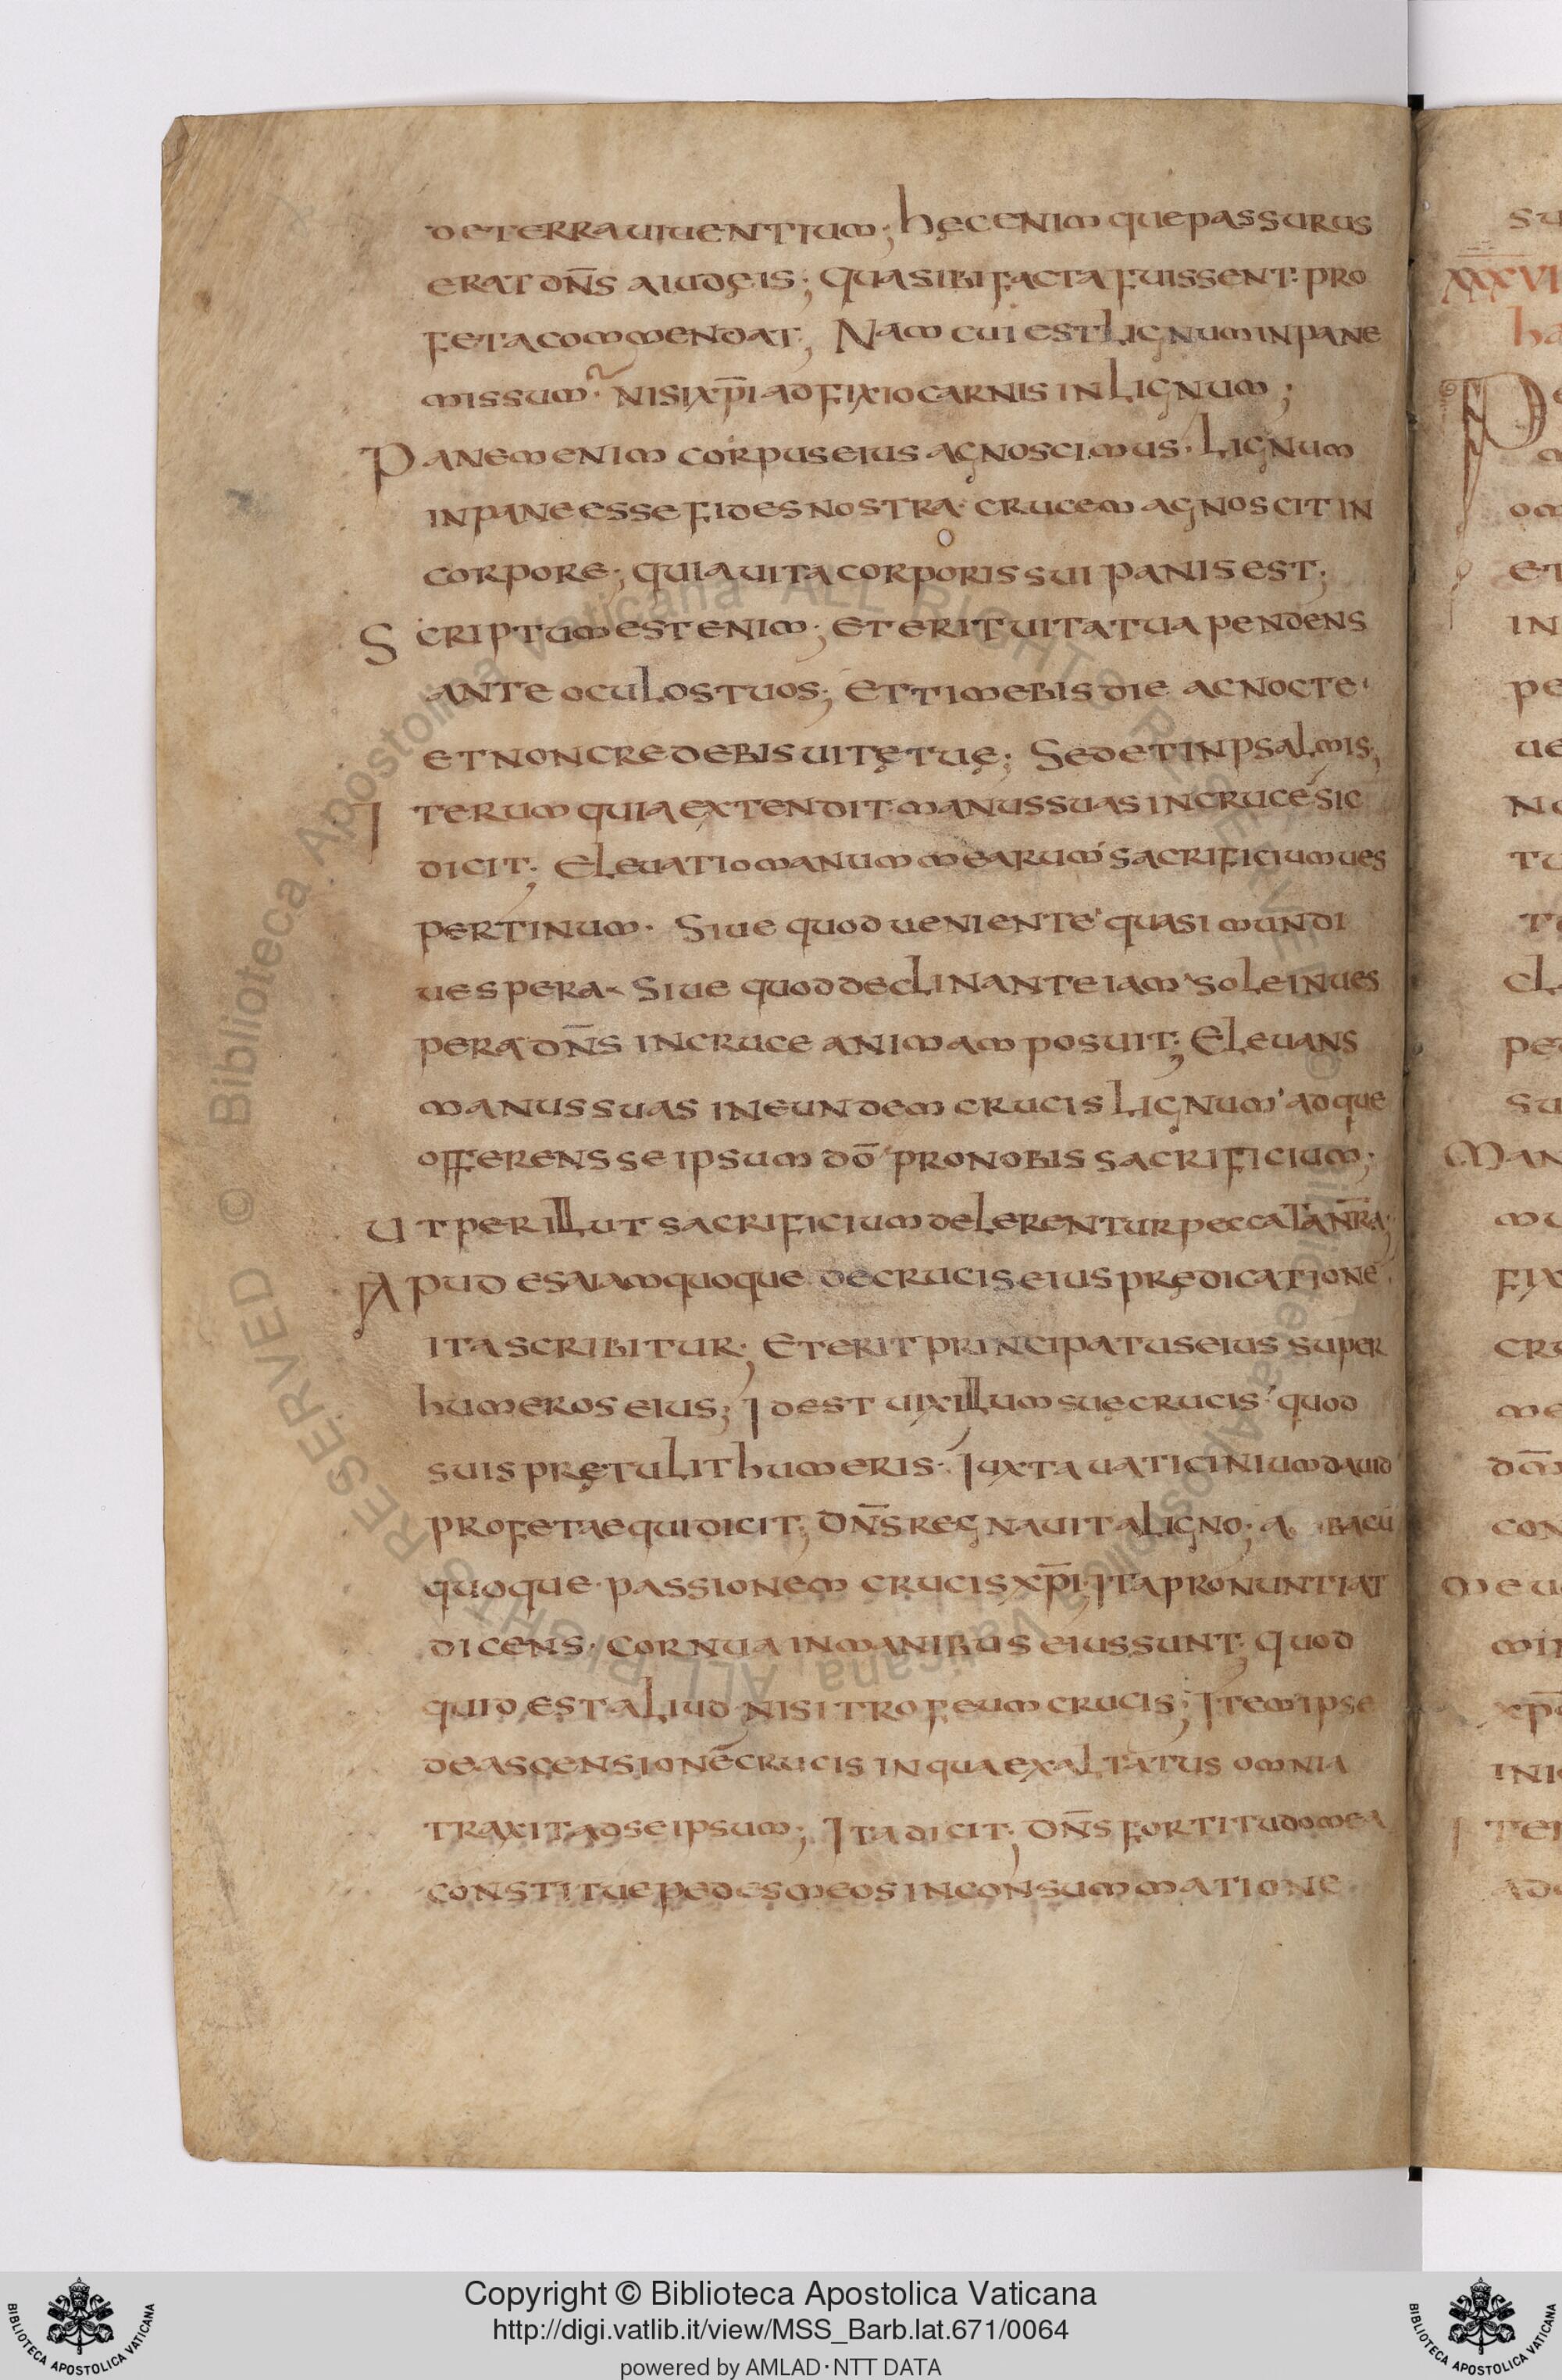 de terra uiuentium; hęc enim que passurus
erat dn̄s a iudęis; quasi ibi facta fuissent pro
feta commendat; Nam cui est lignum in pane
missum· nisi xp̄i adfixio carnis in lignum;
Panem enim corpus eius agnoscimus· lignum
in pane esse fides nostra· crucem agnoscit in
corpore; quia uita corporis sui panis est;
Scriptum est enim; et erit uita tua pendens
ante oculos tuos; et timebis die ac nocte·
et non credebis uitę tuę; Sed et in psalmis;
Iterum quia extendit manus suas in crucē sic
dicit; Eleuatio manum mearum sacrificium ues
pertinum· Siue quod ueniente quasi mundi
uespera· Siue quod declinante iam sole in ues
pera dn̄s in cruce animam posuit; Eleuans
manus suas in eundem crucis lignum adque
offerens se ipsum dō pro nobis sacrificium;
Ut per illut sacrificium delerentur peccata nr̄a;
Apud esaiam quoque de crucis eius prędicatione
ita scribitur; Et erit principatus eius super
humeros eius; Id est uixillum suę crucis quod
suis prętulit humeris· Iuxta uaticinium dauid
profetae qui dicit; Dn̄s regnauit a ligno; a bacū
quoque passionem crucis xp̄i· ita pronuntiat
dicens· cornua in manibus eius sunt; quod
quid est aliud nisi trofeum crucis; Item ipse
de ascensione crucis in qua exaltatus omnia
traxit ad se ipsum; Ita dicit; Dn̄s fortitudo mea
constitue pedes meos in consummatione
su
XXXVI
ha
om
et
in
pe
ue
tu
cl
pe
su
Man
mu
fix
cru
me
dm̄
con
meu
min
xp̄
ini
Iter
ad
Copyright © Biblioteca Apostolica Vaticana
http://digi.vatlib.it/view/MSS_Barb.lat.671/0064
powered by AMLAD·NTT DATA
BIBLIOTECA APOSTOLICA VATICANA
BIBLIOTECA APOSTOLICA VATICANA
© Biblioteca Apostolica Vaticana ALL RIGHTS RESERVED